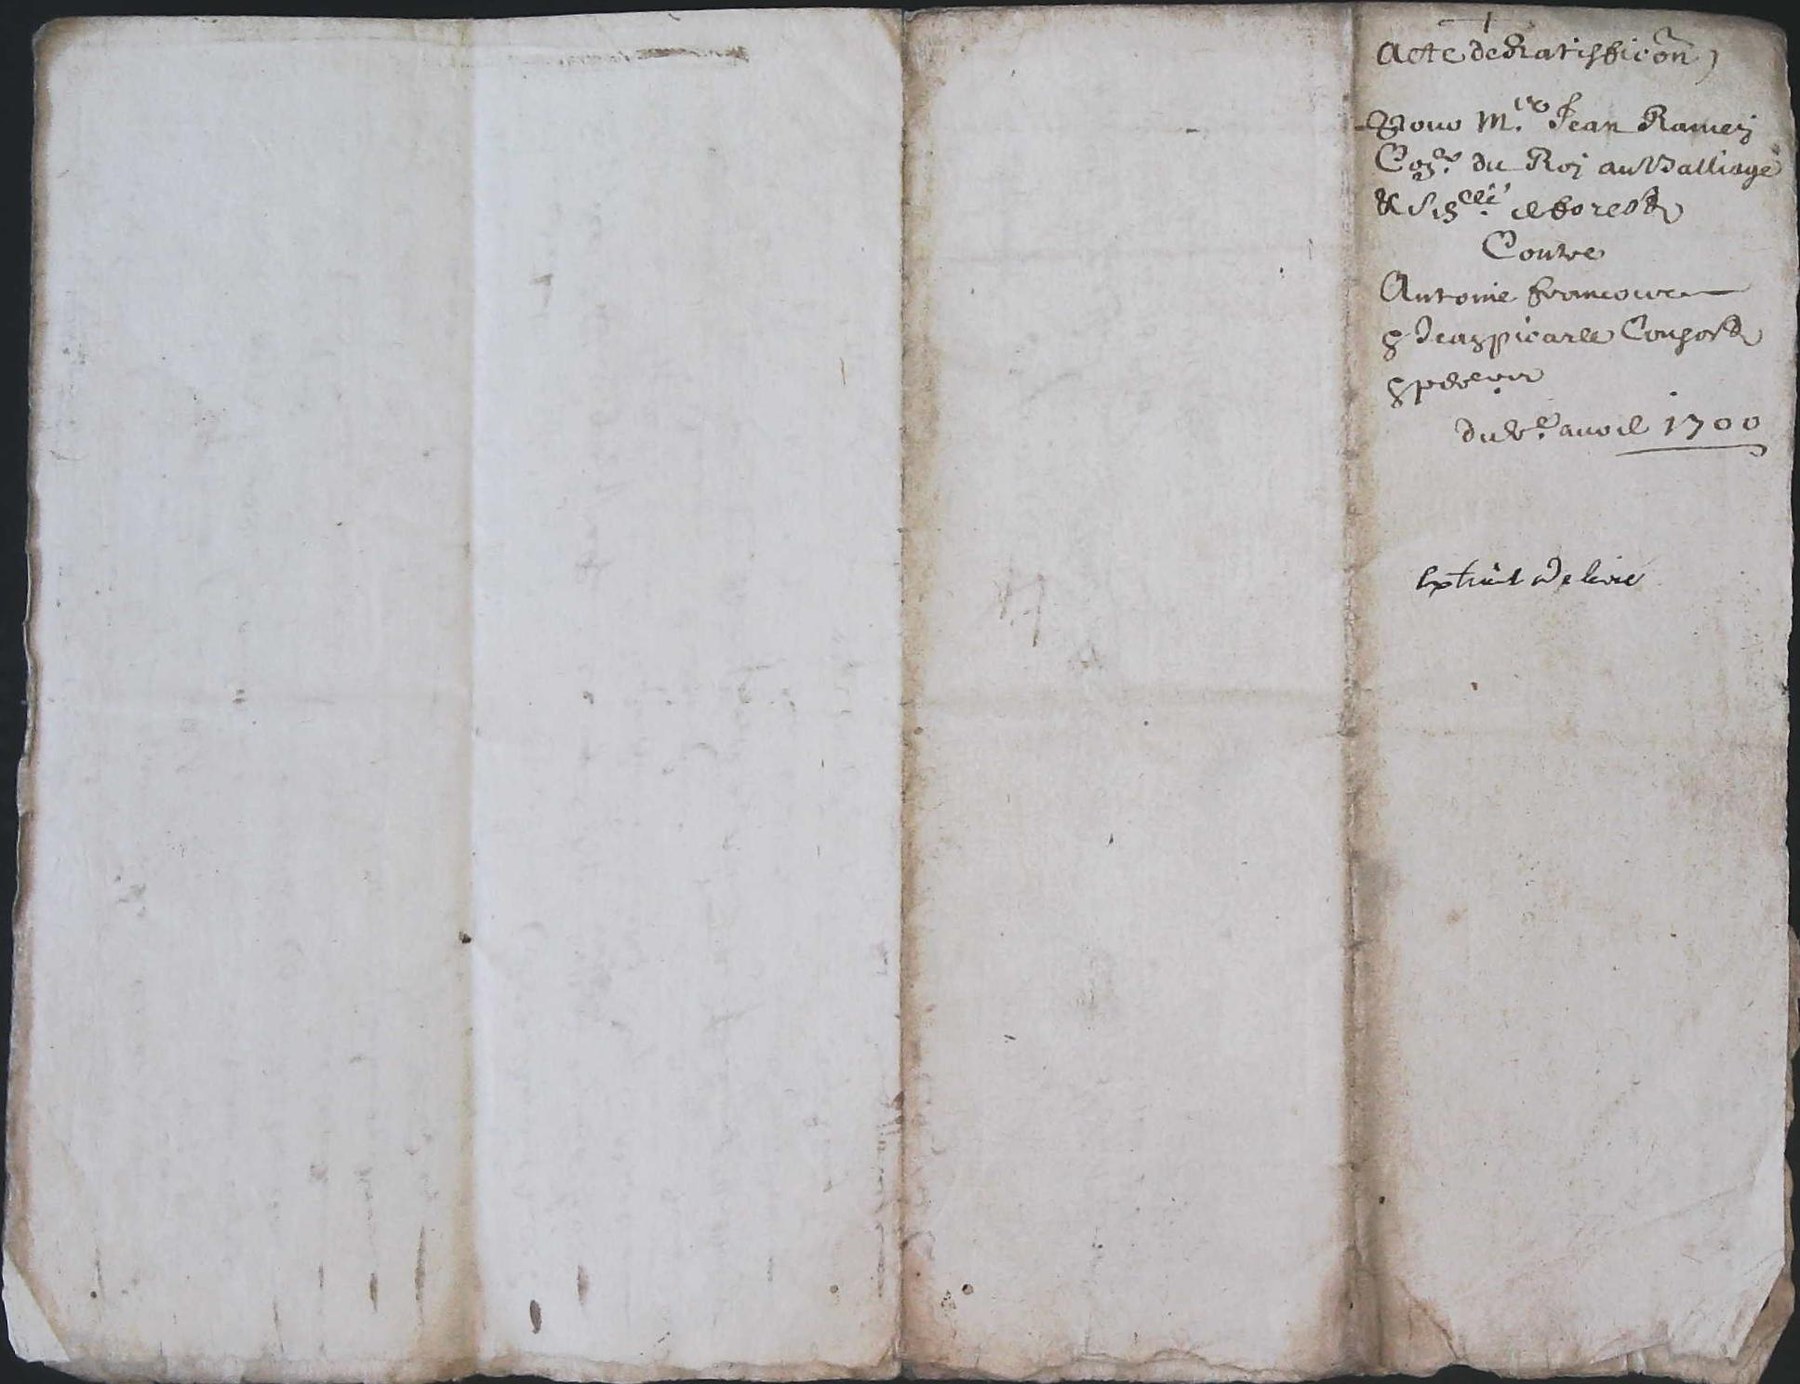 Acte de Ratifficõn
Pour M.re Jean Ramey
Con.er du Roy au Balliage
& Sen.cée de forestz
Contre
Antoine francour
& Jean picarle Consortz
du 8.e auril 1700
Extrait deliuré